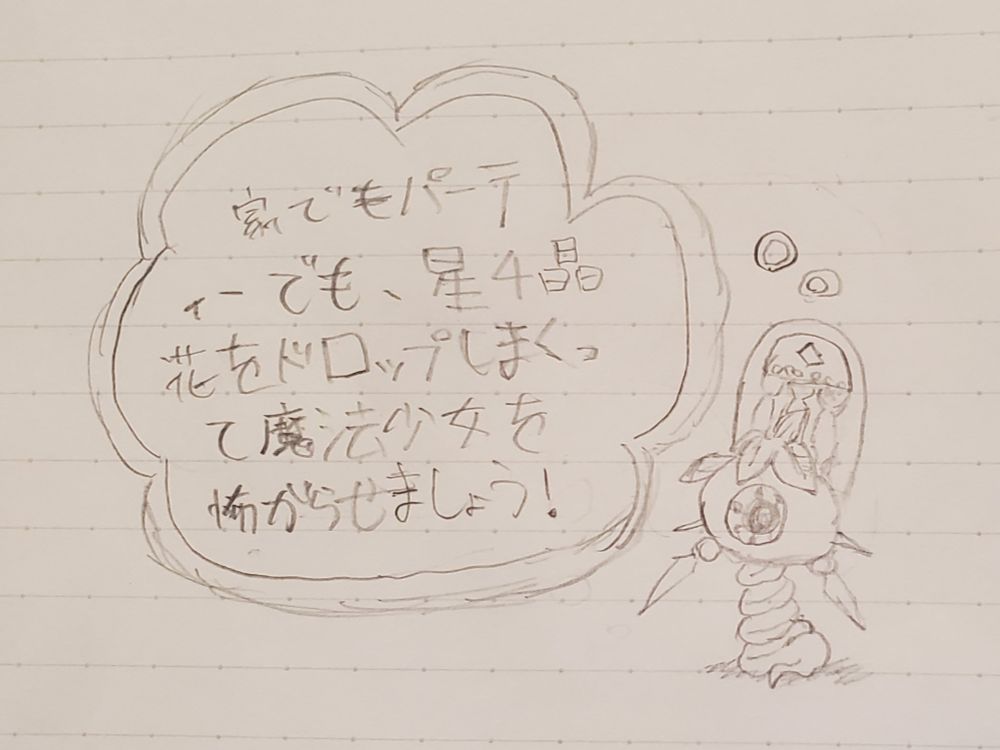 家でもパーテ
ィーでも、星4晶
花をドロップしまくっ
て魔法少女を
怖がらせましょう!